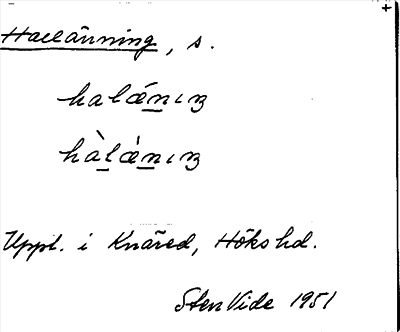 Hallänning, s.
halǽn̲ıɴ
hàl̲ǽn̲ıɴ
Uppt. i Knäred, Höks hd.
Sten Vide 1951